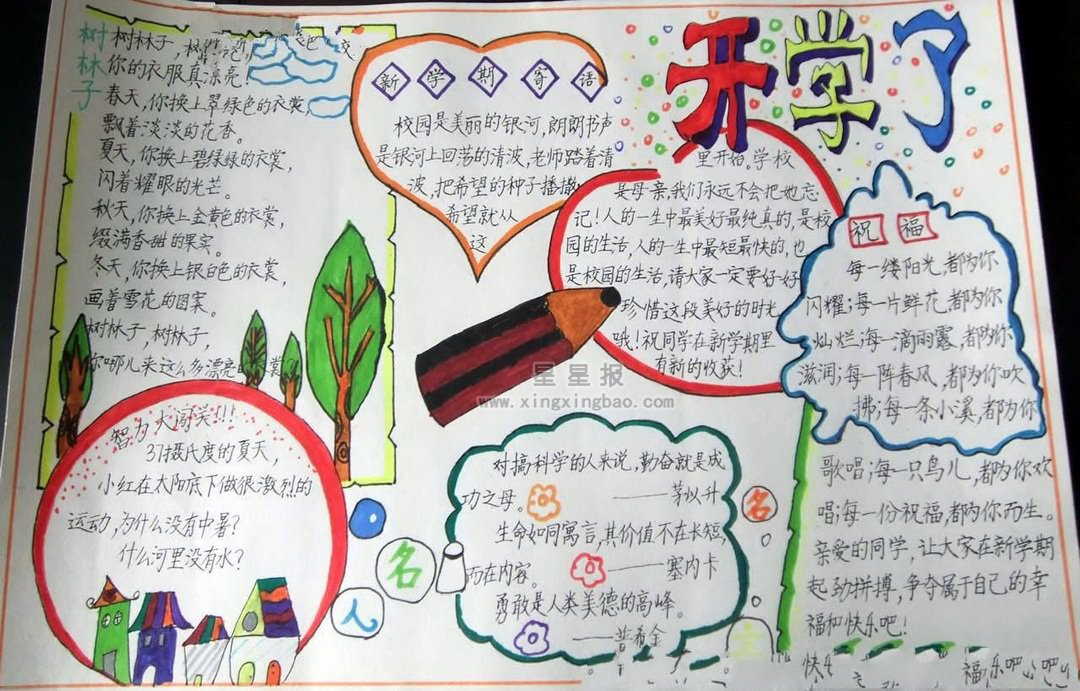 开学了
树林子
树林子,
你的衣服真漂亮!
春天,你换上翠绿色的衣裳,
飘着淡淡的花香。
夏天,你换上碧绿绿的衣裳,
闪着耀眼的光芒。
秋天,你换上金黄色的衣裳,
缀满香甜的果实。
冬天,你换上银白色的衣裳,
画着雪花的图案。
树林子,树林子,
你哪儿来这么多漂亮的衣裳?
新学期寄语
校园是美丽的银河,朗朗书声
是银河上回荡的清波,老师踏着清
波,把希望的种子播撒
希望就从
这
里开始。学校
是母亲,我们永远不会把她忘
记!人的一生中最美好最纯真的,是校
园的生活,人的一生中最短最快的,也
是校园的生活,请大家一定要好好
珍惜这段美好的时光
哦!祝同学在新学期里
有新的收获!
祝福
每一缕阳光,都为你
闪耀;每一片鲜花,都为你
灿烂;每一滴雨露,都为你
滋润;每一阵春风,都为你吹
拂;每一条小溪,都为你
歌唱;每一只鸟儿,都为你欢
唱;每一份祝福,都为你而生。
亲爱的同学,让大家在新学期
起劲拼搏,争夺属于自己的幸
福和快乐吧!
快乐
福乐吧
智力大闯关!!!
37摄氏度的夏天,
小红在太阳底下做很激烈的
运动,为什么没有中暑?
什么河里没有水?
名
人
名
对搞科学的人来说,勤奋就是成
功之母。
——茅以升
生命如同寓言,其价值不在长短,
而在内容。
——塞内卡
勇敢是人类美德的高峰。
——普希金
星星报
www.xingxingbao.com